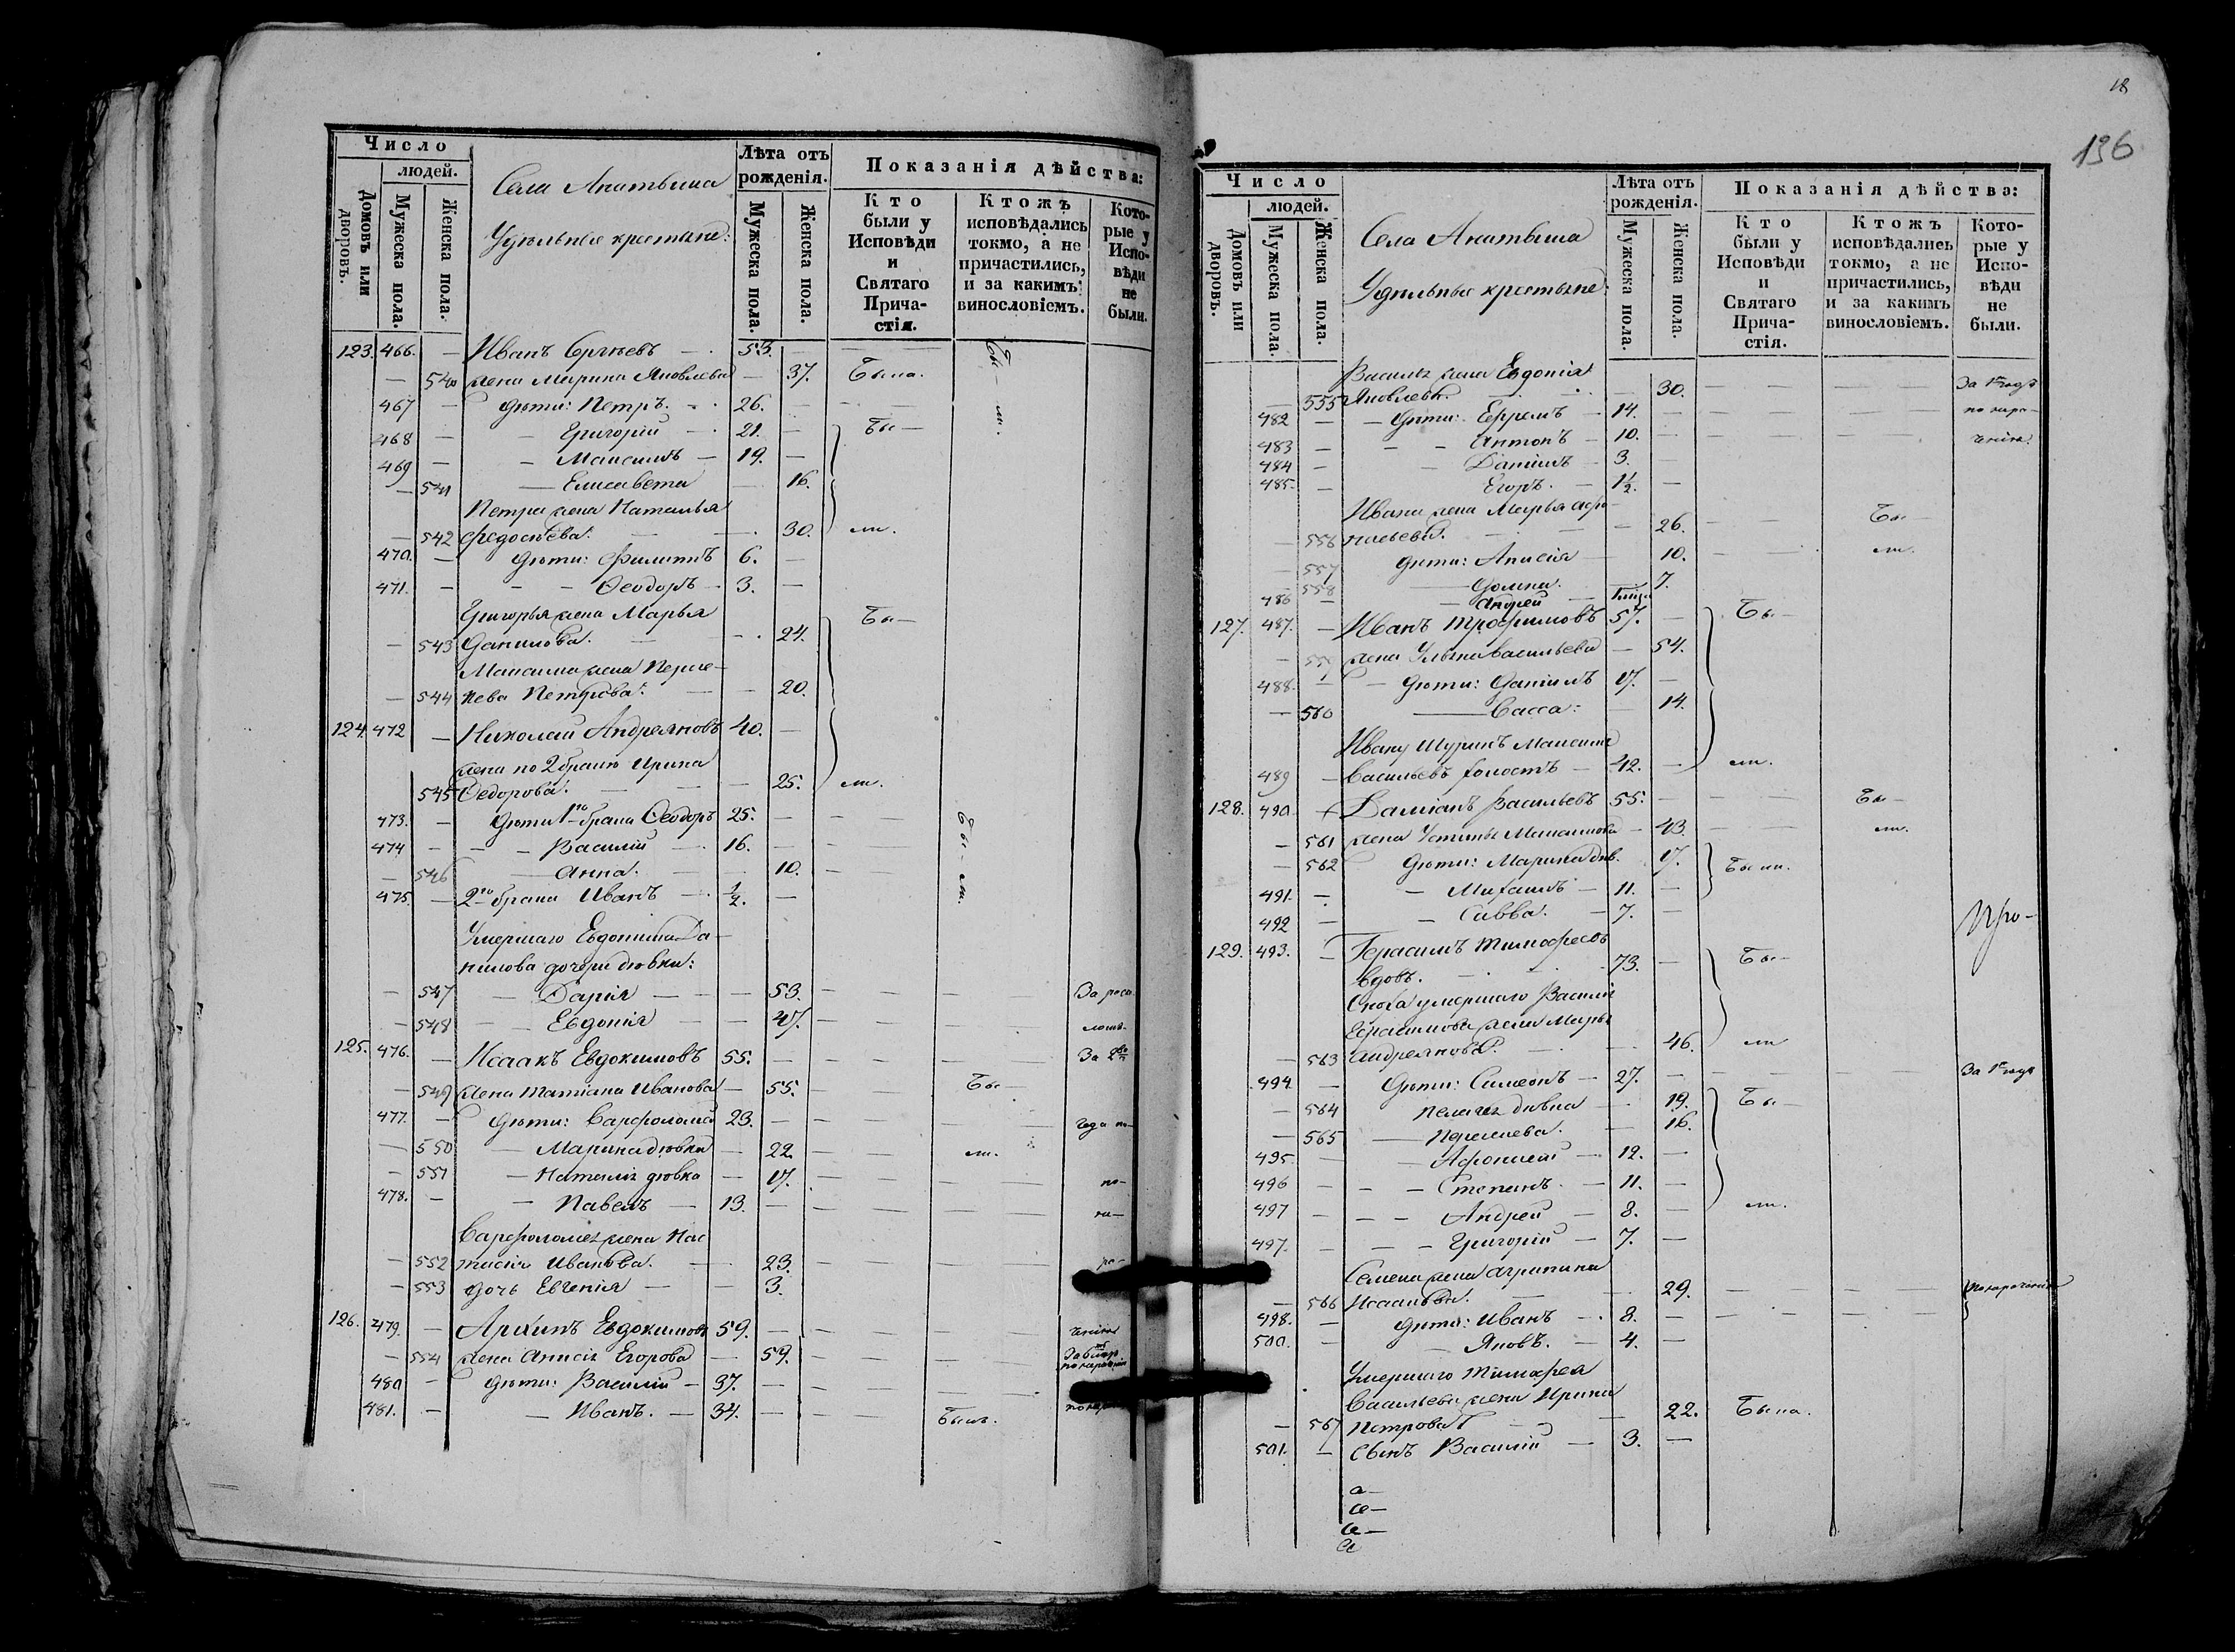 Число
людей.
Домовъ или дворовъ.
Мужеска пола.
Женска пола.
Села
Удѣльные крестьяне:
Лѣта отъ рожденія.
Мужеска пола.
Женска пола.
Показанія дѣйства:
Кто были у Исповѣди и Святаго Прича-стія.
Ктожъ исповѣдались токмо, а не причастились, и за какимъ винословіемъ.
Кото-рые у Испо-вѣди не были.
123. 466. — Иванъ Сергѣевъ — 53. —
— 540 жена Марина Яковлева — 37. Была.
467 — дѣти: Петръ. 26.
468 — Григорій 21. — Бы—
469 — Максимъ — 19. —
— 541 — Елисавета — 16.
Петра жена Наталья
— 542 Федосѣева. — 30. ли.
470. — дѣти: Филиппъ 6. —
471. — Ѳеодоръ — 3. —
Григорья жена Марья Бы—
— 543 Данилова. 24.
Максима жена
— 544 Петрова. — 20.
124. 472 — Николай Андреяновъ 40. —
жена по 2 браку Ирина
545 Ѳедорова. — 25. ли.
473. — дѣти 1го брака Ѳеодоръ 25. —
474 — Василій — 16. —
— 546 — Анна. 10. —
475. — 2го брака Иванъ 1/2. —
Умершаго Евдокима Да—
нилова дочери дѣвки:
— 547 — Дарія — 53. —
— 548 — Евдокія — 47. —
125. 476. — Исаакъ Евдокимовъ 55. — За 2
— 549 жена Татіана Иванова — 55. — Бы—
477. — дѣти: Варфоломей 23. — года
— 550 — Марина дѣвка — 22. — ли.
— 551 — Наталія дѣвка — 17. — по—
478. — Павелъ — 13. —
Варфоломея жена Нас
— 552 тасія Иванова. — 23. —
— 553 дочь Евгенія — 3.
126. 479. — Архипъ Евдокимовъ 59. —
— 554 жена Анисія Егорова — 59. —
480 — дѣти: Василій — 37. —
481. — Иванъ. — 34. — Былъ.
18
136
Число
людей.
Домовъ или дворовъ.
Мужеска пола.
Женска пола.
Села
Удѣльные крестьяне:
Лѣта отъ рожденія.
Мужеска пола.
Женска пола.
Показанія дѣйства:
Кто были у Исповѣди и Святаго Прича-стія.
Ктожъ исповѣдались токмо, а не причастились, и за какимъ винословіемъ.
Кото-рые у Испо-вѣди не были.
Василія жена Евдокія
— 555 Яковлева. — 30. —
482 — дѣти: Ефремъ — 14. —
483 — Антонъ — 10. —
484 — Даніилъ — 3. —
485. — Егоръ. — 1 1/2. —
Ивана жена Марья Бы—
— 556 — 26. —
— 557 дѣти: Анисія — 10. — ли.
— 558 — Домна. 7.
486 — Андрей —
127. 487. — Иванъ Трофимовъ 57. — Бы—
— 559 жена Ульяна Васильева — 54.
488. — дѣти: Даніилъ 17. —
— 560 — Васса: — 14.
Ивану шуринъ Максимъ
489 — Васильевъ холостъ — 42. — ли.
128. 490. — Даміанъ Васильевъ 55. — Бы—
— 561 жена Устинья Максимова — 43. — ли.
— 562 дѣти: Марина дѣв. 17. Были.
491. — Михаилъ — 11. —
492 — Савва. — 7. —
129. 493. — Герасимъ Тимофеевъ
вдовъ. 73. — Бы—
Сноха умершаго Василія
Герасимова жена Марья
— 563 Андреянова. 46. ли
494. — дѣти: Симеонъ — 27. —
— 564 Пелагія дѣвка — 19. Бы—
— 565 — 16.
495. — 12. —
496 — Степанъ. — 11. —
497 — Андрей — 8. — ли.
497. — Григорій — 7. —
Семена жена Агрипина
— 566 Исаакова. 29. —
498. — дѣти: Иванъ — 8. —
500. — Яковъ. — 4. —
Умершаго Тимофея
Васильева жена Ирина
— 567 Петрова — 22. Была.
501. — Сынъ Василій — 3. —